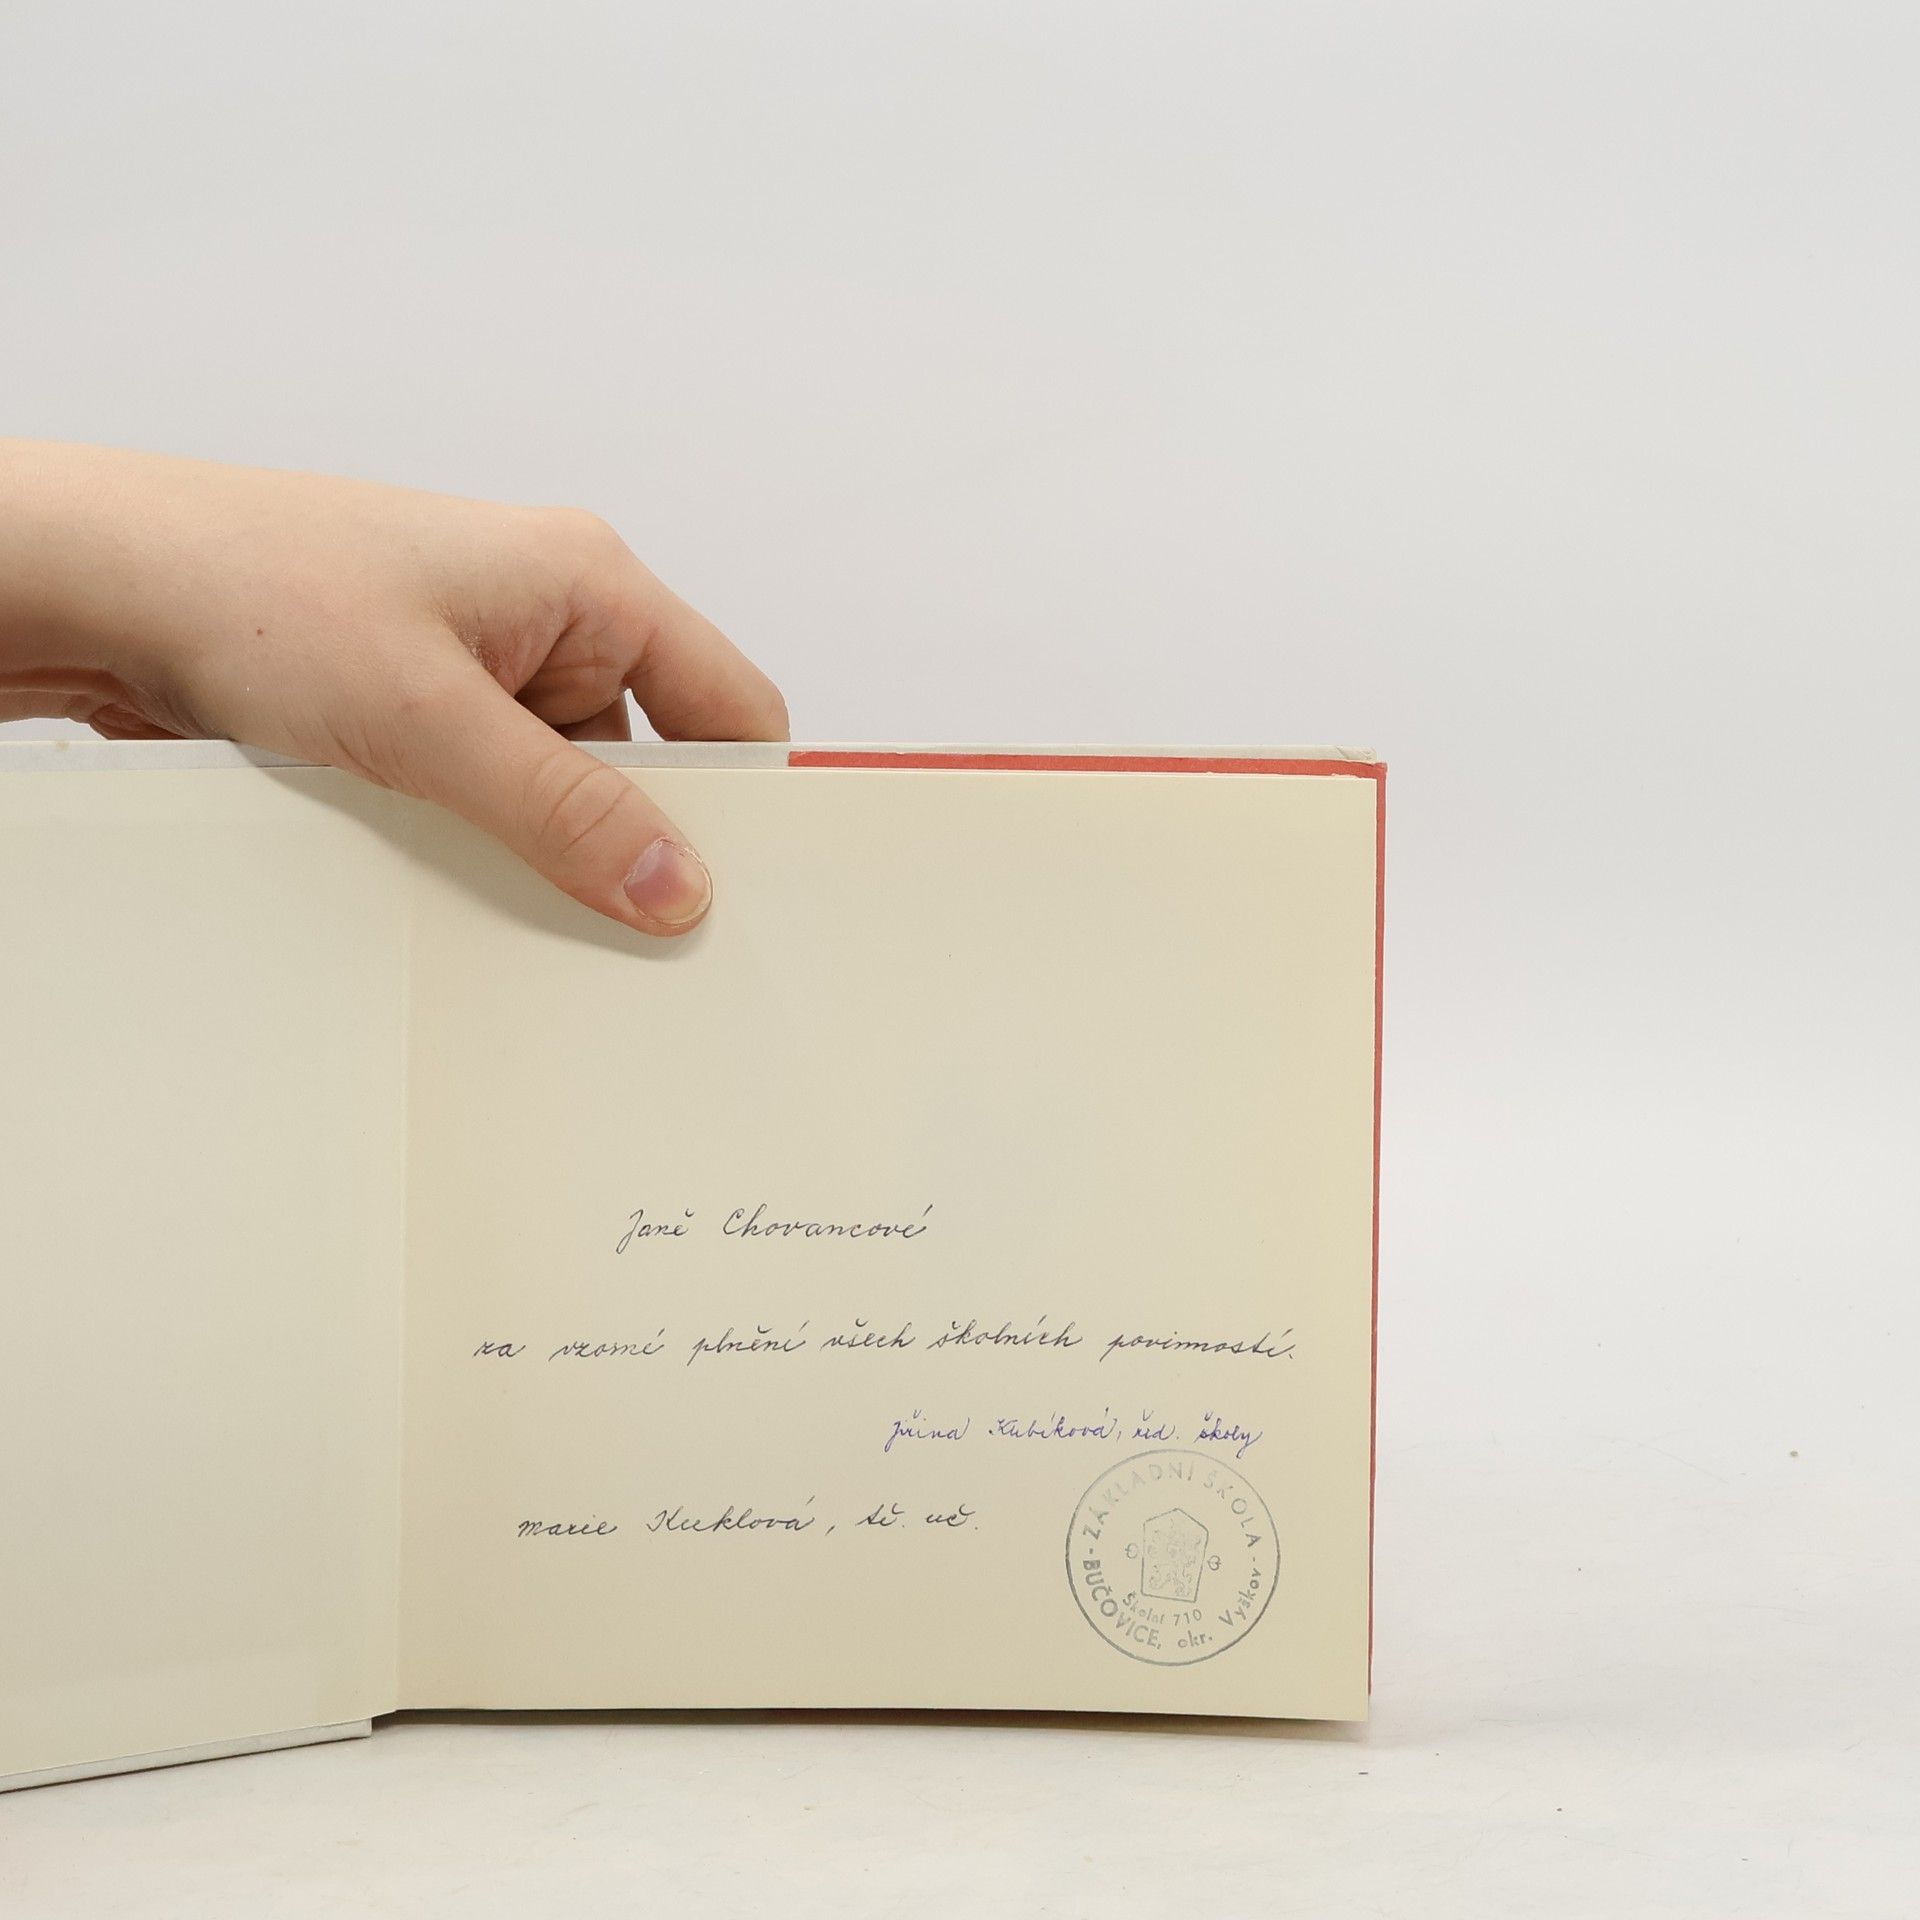 Janě Chovancové
za vzorné plnění všech školních povinností.
Jiřina Kubíková, řed. školy
Marie Kuklová, tř. uč.
- ZÁKLADNÍ ŠKOLA -
Školní 710
BUČOVICE, okr. Vyškov